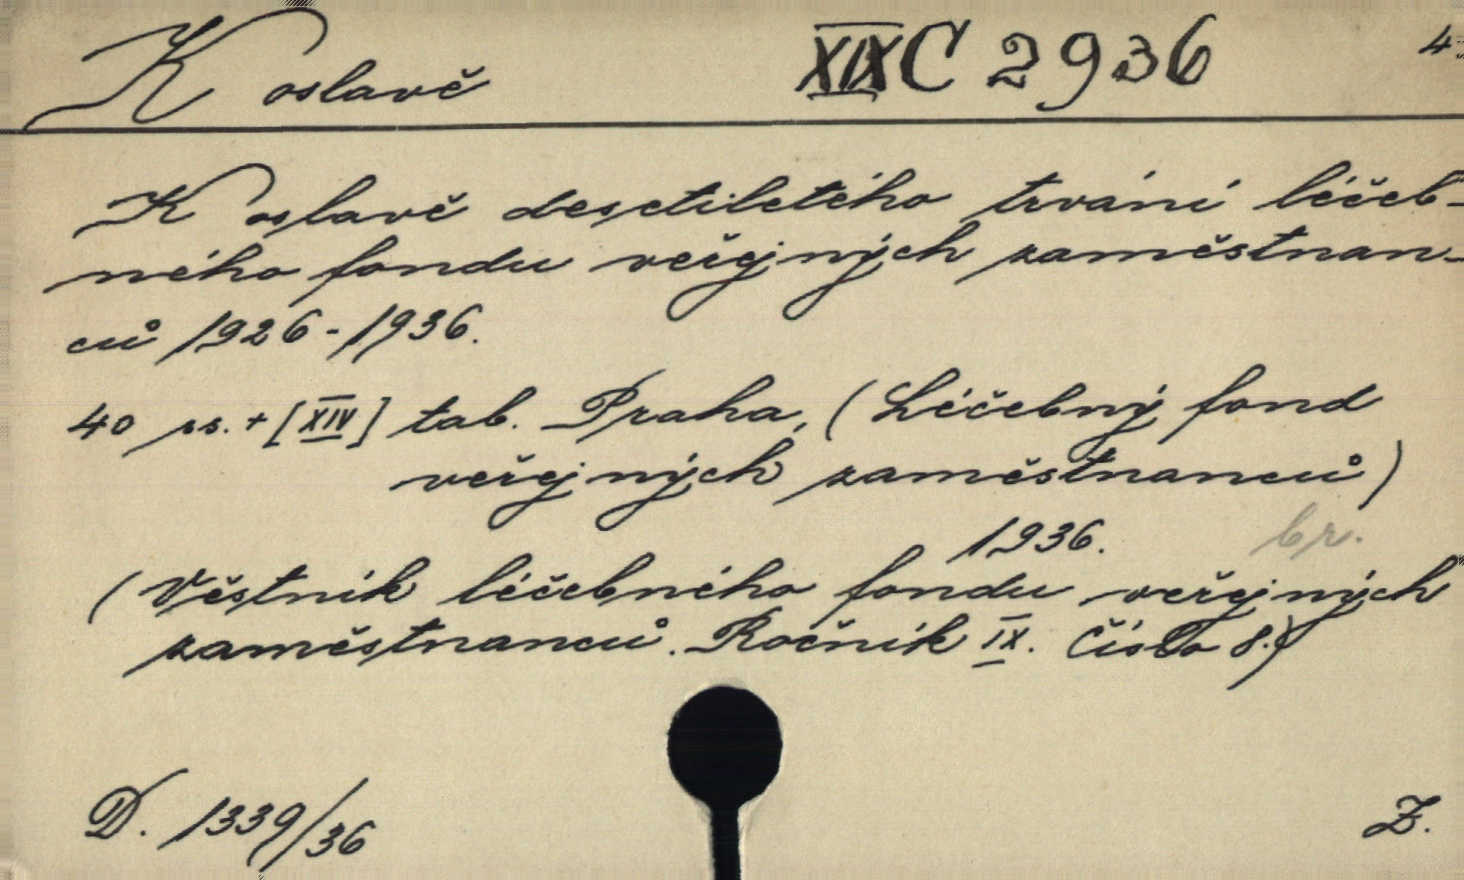 K oslavě XIX C 2936 4.
K oslavě desetiletého trvání léčeb-
ného fondu veřejných zaměstnan-
ců 1926-1936.
40 ss. + [XIV] tab. Praha, (Léčebný fond
veřejných zaměstnanců)
1936. br.
(Věstník léčebného fondu veřejných
zaměstnanců. Ročník IX. Číslo 8.)
D. 1339/36 Z.